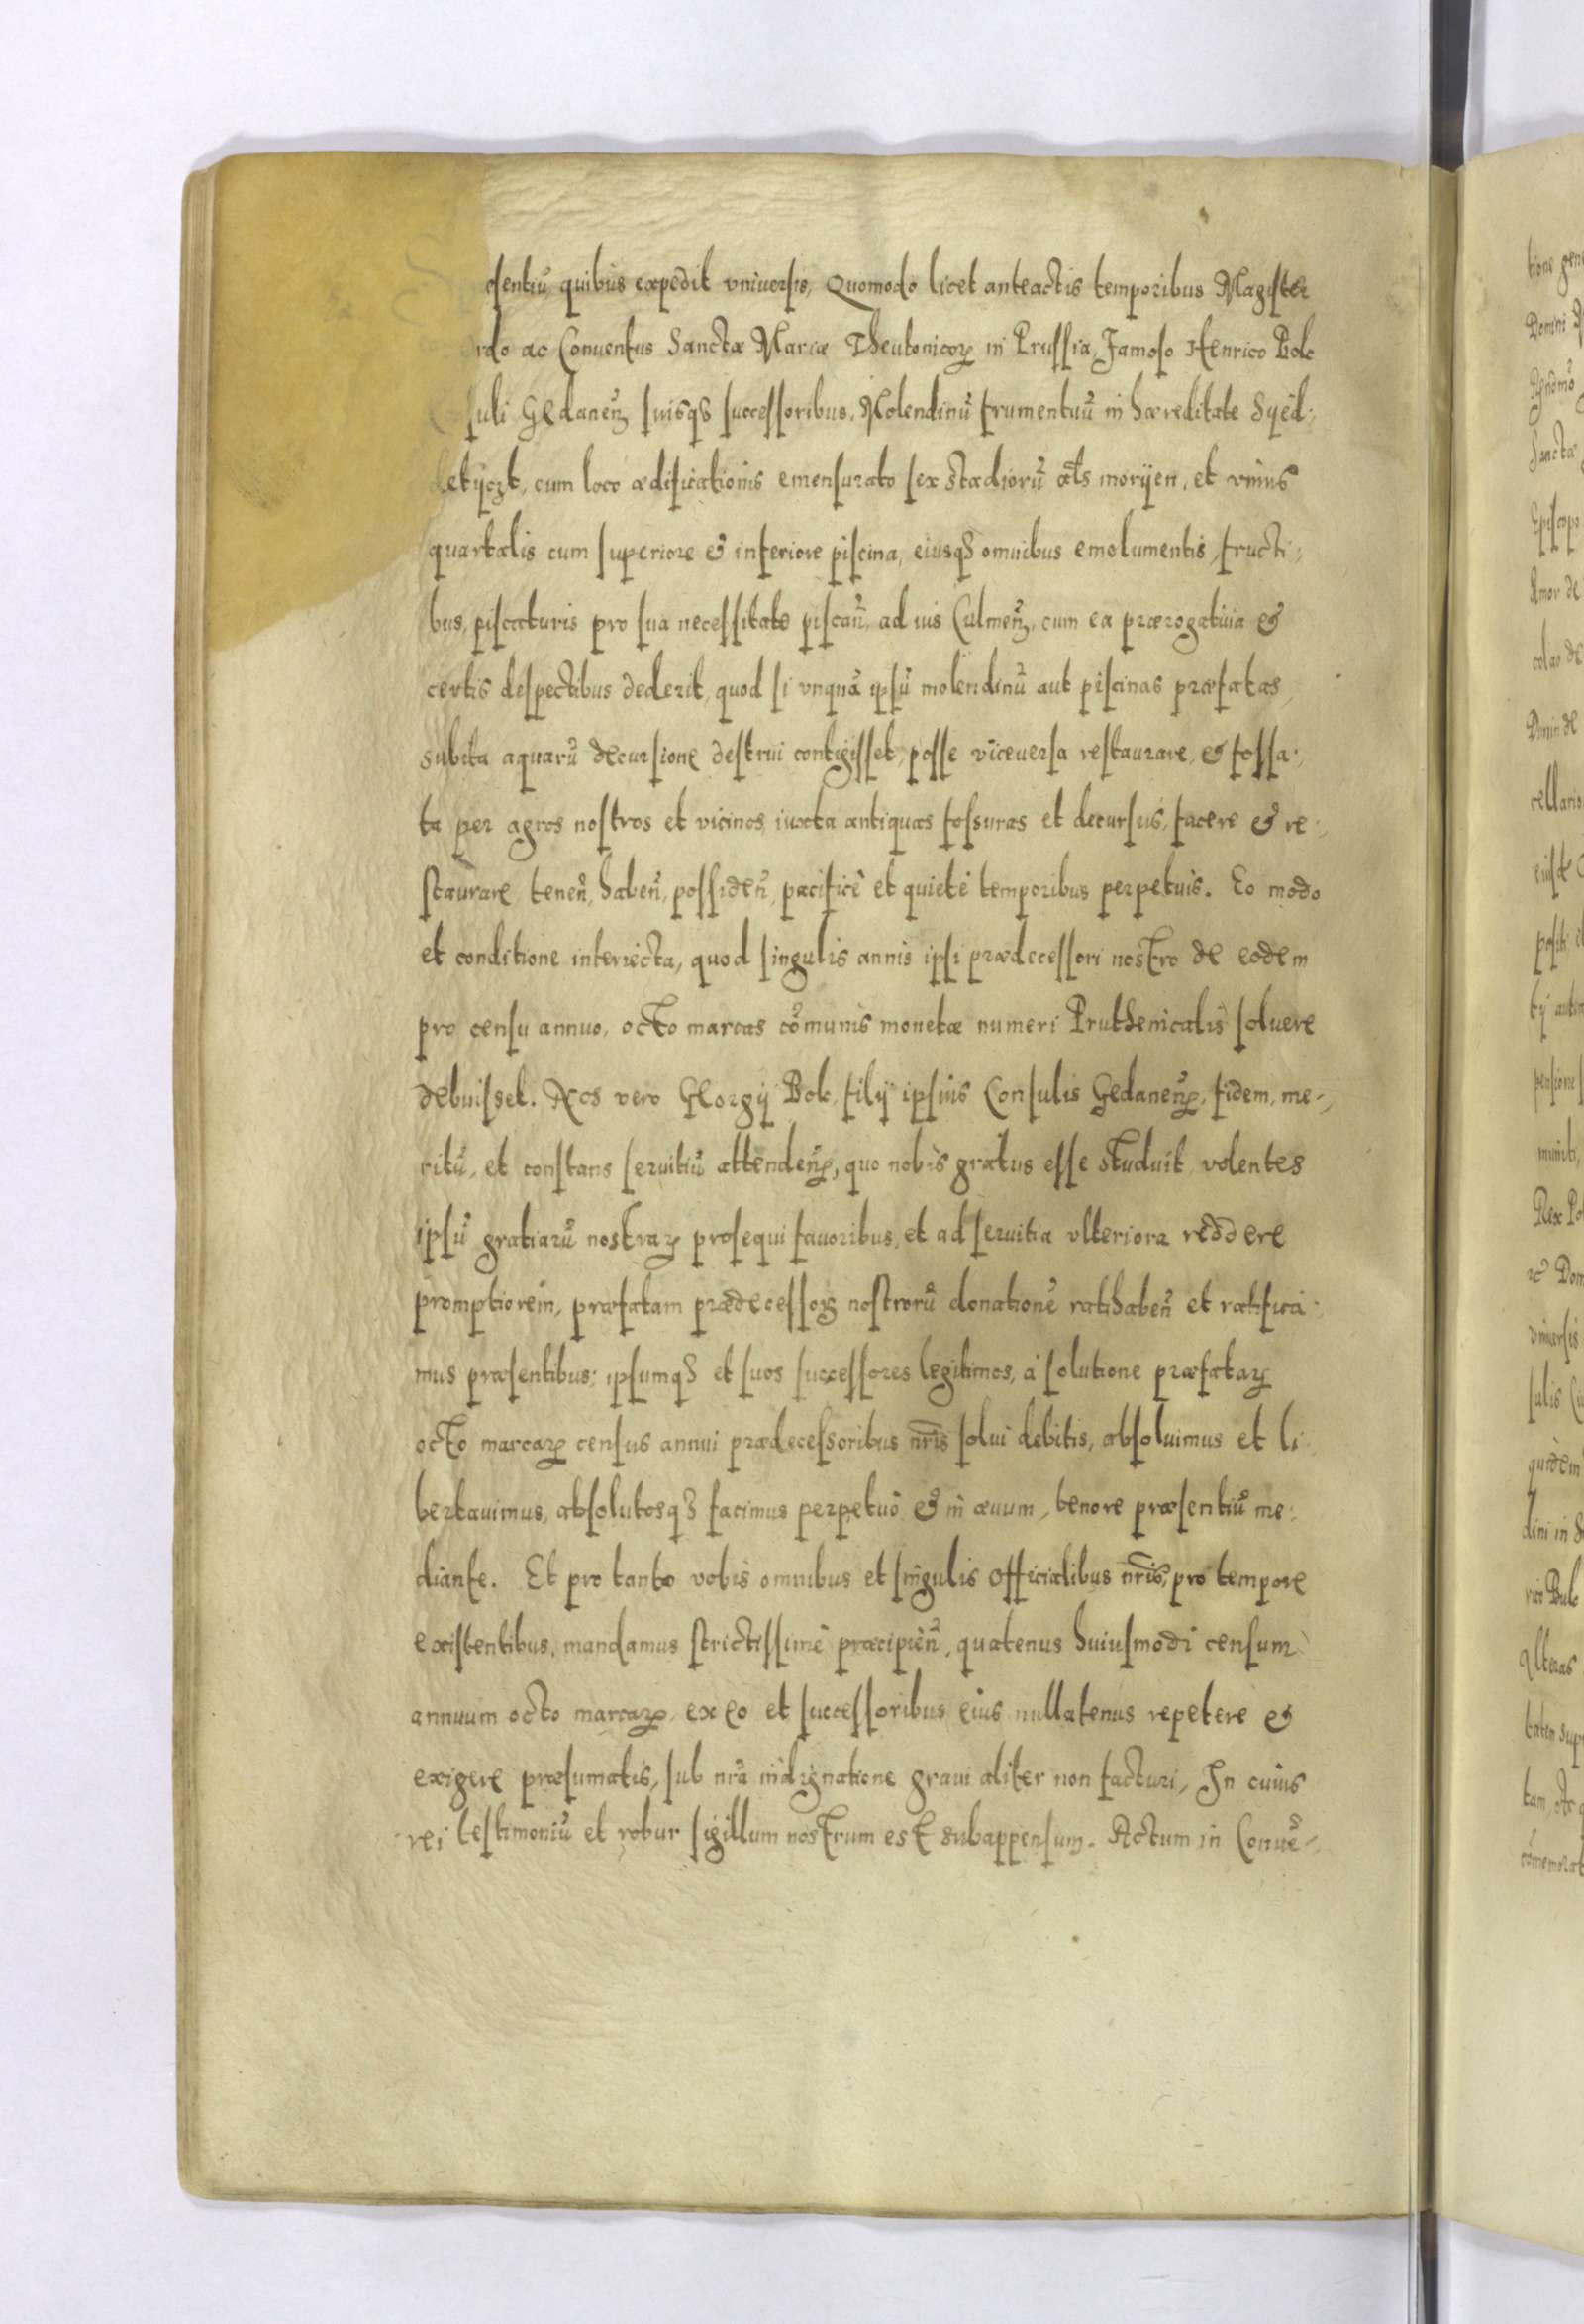 esentiũ, quibus expedit vniuersis, Quomodo licet anteactis temporibus Magister
Ordo ac Conuentus Sanctæ Mariæ Theutonicoꝝ in Prussia, Famoso Henrico Bolc
suli Gedaneñ suisqꝫ successoribus, Molendinũ frumentuũ in hæreditate Syed-
letijczk, cum loco ædificationis emensurato sex stadiorũ als morijen, et vnius
quartalis cum superiore & inferiore piscina, eiusqꝫ omnibus emolumentis, fructi-
bus, piscaturis pro sua necessitate piscañ, ad ius Culmeñ, cum ea prærogatiua &
certis despectibus dederit, quod si vnquã ipsũ molendinũ aut piscinas præfatas,
subita aquarũ decursione destrui contigisset, posse viceuersa restaurare, & fossa-
ta per agros nostros et vicinos iuxta antiquas fossuras et decursus, facere & re-
staurare, teneñ, habeñ, possideñ, pacificè et quietè temporibus perpetuis. Eo modo
et conditione interiecta, quod singulis annis ipsi prædecessori nostro de eodem
pro censu annuo, octo marcas cõmunis monetæ numeri Pruthenicalis soluere
debuisset. Nos vero Georgij Bolc, filij ipsius Consulis Gedaneñ, fidem, me-
ritũ, et constans seruitiũ attendeñ, quo nobis gratus esse studuit, volentes
ipsũ gratiarũ nostraꝝ prosequi fauoribus, et ad seruitia vlteriora reddere
promptiorem, præfatam prædecessoꝝ nostrorũ donationẽ ratihabeñ et ratifica-
mus præsentibus; ipsumqꝫ et suos successores legitimos, à solutione præfataꝝ
octo marcaꝝ census annui prædecessoribus nr̃is solui debitis, absoluimus et li-
bertauimus, absolutosqꝫ facimus perpetuò & in æuum, tenore præsentiũ me-
diante. Et pro tanto vobis omnibus et singulis officialibus nr̃is, pro tempore
existentibus, mandamus strictissimè præcipieñ, quatenus huiusmodi censum
annuum octo marcaꝝ, ex eo et successoribus eius nullatenus repetere &
exigere præsumatis, sub nr̃a indignatione graui aliter non facturi, In cuius
rei testimoniũ et robur sigillum nostrum est subappensum. Actum in Conuẽ-